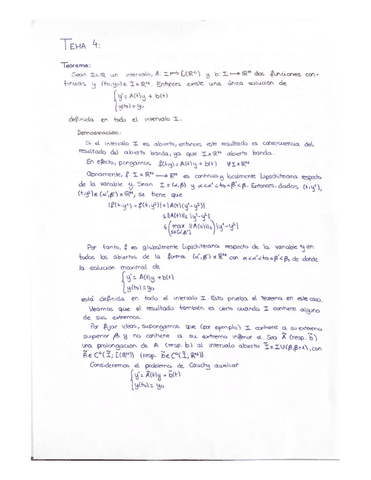 TEMA 4:
Teorema:
Sean I⊂ℝ un intervalo, A: I⟼ L(ℝᴺ) y b: I ⟼ ℝᴺ dos funciones con-
tinuas y (t₀,y₀)∈ I×ℝᴺ. Entonces existe una única solución de
{ y' = A(t)y + b(t)
y(t₀) = y₀
definida en todo el intervalo I.
Demostración:
Si el intervalo I es abierto, entonces este resultado es consecuencia del
resultado del abierto banda, ya que I×ℝᴺ abierto banda.
En efecto, pongamos f(t,y) = A(t)y + b(t) ∀ I×ℝᴺ
Obviamente, f: I×ℝᴺ ⟼ ℝᴺ es continua y localmente Lipschitziana respecto
de la variable y. Sean I = (α,β) y α<α'<t₀<β'<β. Entonces, dados (t,y¹),
(t,y²)∈(α',β')×ℝᴺ, se tiene que
|f(t,y¹) - f(t,y²)| = |A(t)(y¹-y²)|
≤ ||A(t)||₂ |y¹-y²|
≤ ( max ||A(s)||₂) |y¹-y²|
s∈[α',β']
Por tanto, f es globalmente Lipschitziana respecto de la variable y en
todos los abiertos de la forma (α',β')×ℝᴺ con α<α'<t₀<β'<β, de donde
la solución maximal de
{ y' = A(t)y + b(t)
y(t₀) = y₀
está definida en todo el intervalo I. Esto prueba el teorema en este caso.
Veamos que el resultado también es cierto cuando I contiene alguno
de sus extremos.
Por fijar ideas, supongamos que (por ejemplo) I contiene a su extremo
superior β y no contiene a su extremo inferior α. Sea Ã (resp. b̃)
una prolongación de A (resp. b) al intervalo abierto Ĩ = I∪(β,β+1), con
Ã∈C⁰(Ĩ; L(ℝᴺ)) (resp. b̃∈C⁰(Ĩ; ℝᴺ))
Consideremos el problema de Cauchy auxiliar
{ y' = Ã(t)y + b̃(t)
y(t₀) = y₀